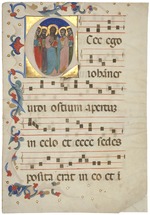 Ecce ego
iohānes
uidi ostium apertum
in celo et ecce sedes
posita erat in eo et i